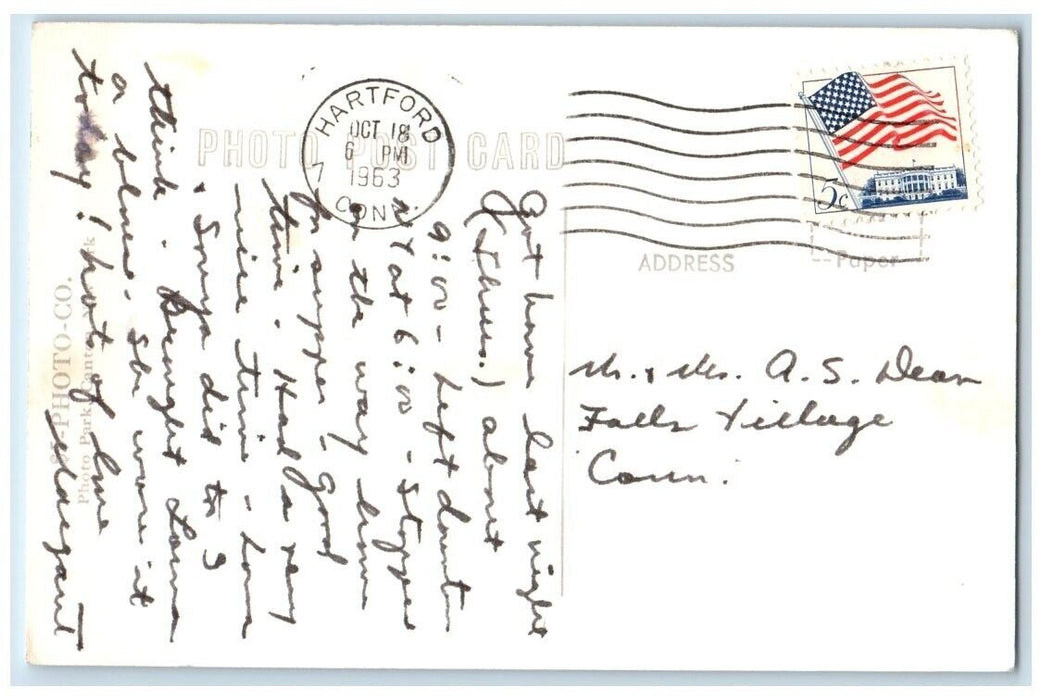 HARTFORD
OCT 18
6 PM
1963
CONN.
5c
PHOTO POST CARD
ADDRESS
Paper
Mr. & Mrs. A. S. Dean
Falls Village
Conn.
Got home last night
(Thurs.) about
9:00 - Left
at 6:00 - Stopped
on the way home
for supper - Good
time. Had a very
nice time - Lorna
& Sonja did to I
think. Brought Lorna
a blouse. She wore it
today! Lots of love
Margaret
PHOTO-CO.
Photo Park, Canton, New York